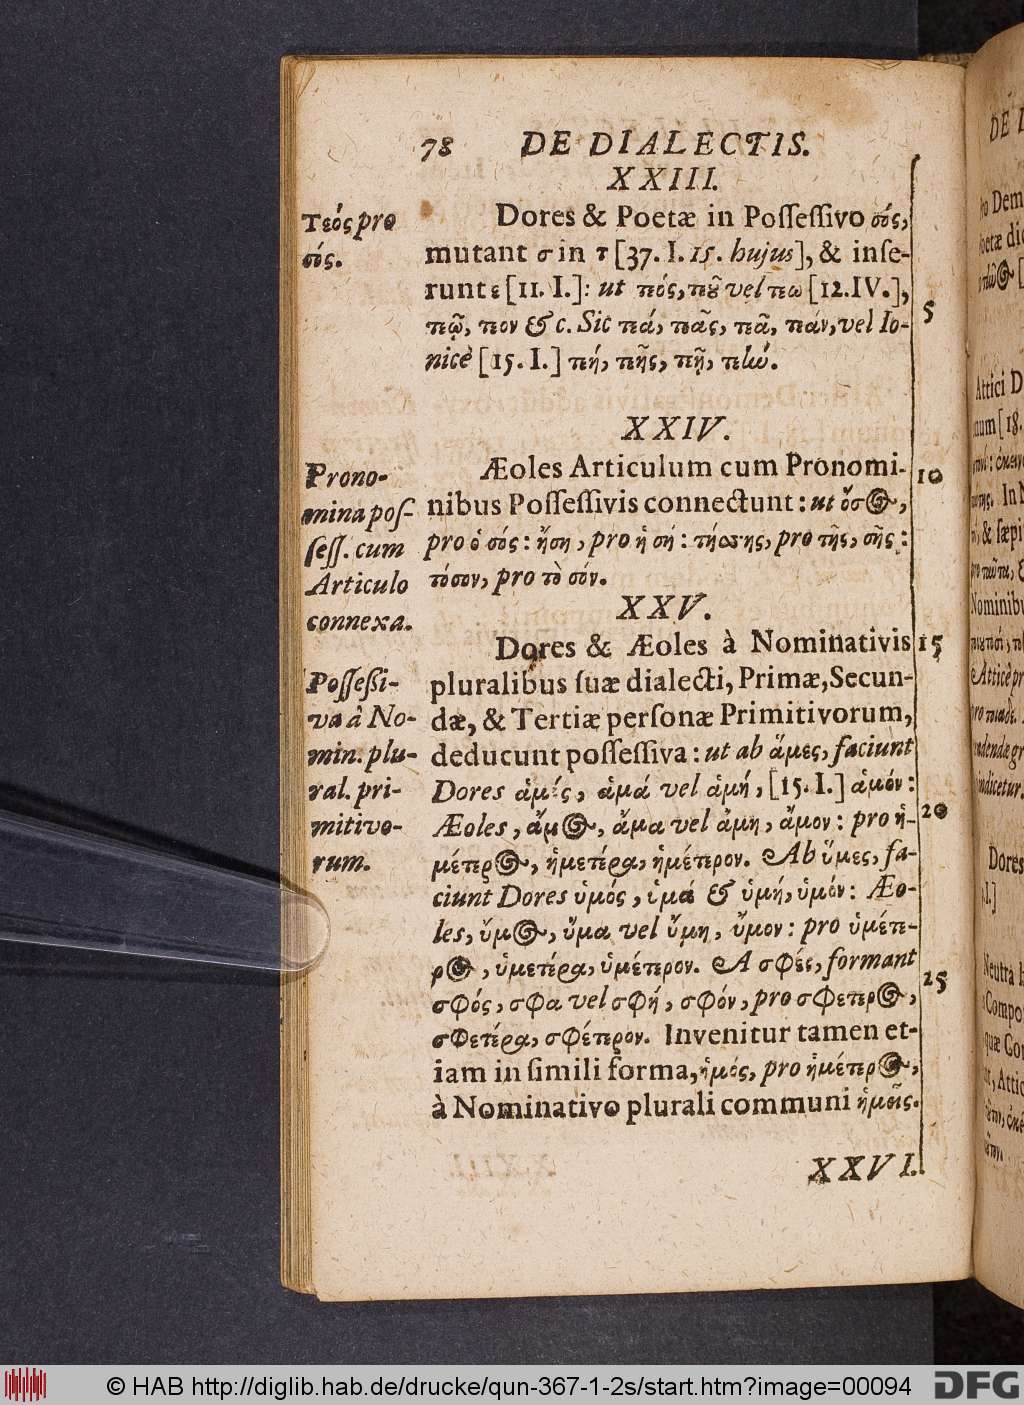 78 DE DIALECTIS.
XXIII.
Τεός pro
σός.
Dores & Poetæ in Poſſeſſivo σός,
mutant σ in τ [37. I. 15. hujus], & inſe-
runt ε [11. I.]: ut τεός, τεȣ͂ vel τεω [12. IV.],
τεῷ, τεον & c. Sic τεά, τεᾶς, τεᾶ, τεάν, vel Io-
nicè [15. I.] τεή, τεῆς, τεῇ, τεLώ.
5
XXIV.
Prono-
mina poſ-
ſeſſ. cum
Articulo
connexa.
Æoles Articulum cum Pronomi-
nibus Poſſeſſivis connectunt: ut ὅσ〾,
pro ὁ σός: ἥση, pro ἡ σή: τήσης, pro τῆς, σῆς:
τόσον, pro τὸ σόν.
10
XXV.
Poſſeßi-
va à No-
min. plu-
ral. pri-
mitivo-
rum.
Dores & Æoles à Nominativis
pluralibus ſuæ dialecti, Primæ, Secun-
dæ, & Tertiæ perſonæ Primitivorum,
deducunt poſſeſſiva: ut ab ἅμες, faciunt
Dores ἁμός, ἁμά vel ἁμή, [15. I.] ἁμόν:
Æoles, ἅμος, ἅμα vel ἅμη, ἅμον: pro ἡ-
μέτερος, ἡμετέρα, ἡμέτερον. Ab ὕμες, fa-
ciunt Dores ὑμός, ὑμά & ὑμή, ὑμόν: Æo-
les, ὕμος, ὕμα vel ὕμη, ὕμον: pro ὑμέτε-
ρος, ὑμετέρα, ὑμέτερον. A σφές, formant
σφός, σφα vel σφή, σφόν, pro σφετερος,
σφετέρα, σφέτερον. Invenitur tamen et-
iam in ſimili forma, ἡμός, pro ἡμέτερος,
à Nominativo plurali communi ἡμεῖς.
15
20
25
XXVI.
DE
Attici D
Dores
Neutra
© HAB http://diglib.hab.de/drucke/qun-367-1-2s/start.htm?image=00094
DFG